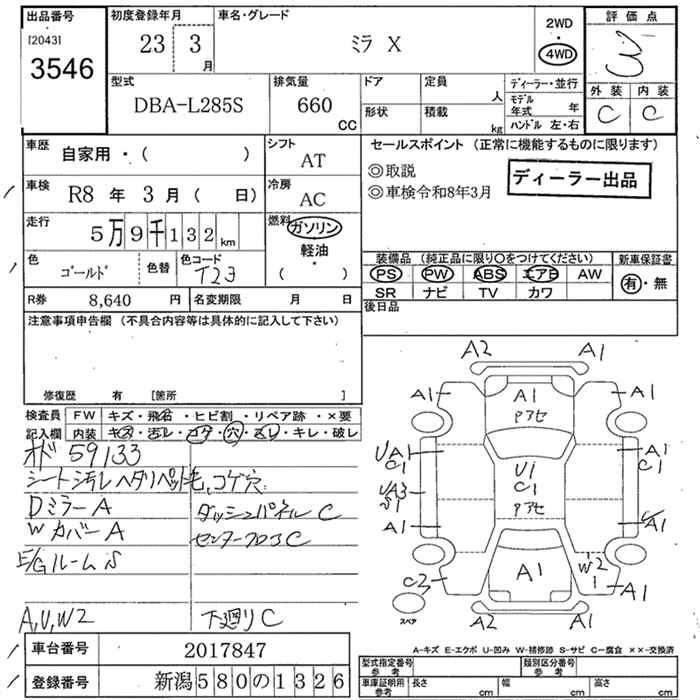 出品番号
[2043]
3546
初度登録年月
23 3月
車名・グレード
ミラ X
2WD
・
4WD
評価点
3
外装 内装
C C
型式
DBA-L285S
排気量
660
CC
ドア
定員
人
形状
積載
kg
ディーラー・並行
モデル年式 年
ハンドル 左・右
車歴
自家用・( )
シフト
AT
車検
R8 年 3 月 ( 日)
冷房
AC
走行
5万9千132km
燃料
ガソリン
軽油
( )
色
ゴールド
色替
色コード
T23
R券 8,640 円
名変期限 月 日
セールスポイント (正常に機能するものに限ります)
◎取説
◎車検令和8年3月
ディーラー出品
装備品 (純正品に限り〇をつけてください)
新車保証書
PS PW ABS エアB AW
有・無
SR ナビ TV カワ
後日品
注意事項申告欄 (不具合内容等は具体的に記入して下さい)
修復歴 有 [箇所 ]
検査員記入欄
FW キズ・飛石・ヒビ割・リペア跡・×要
内装 キズ・汚レ・コゲ・穴・スレ・キレ・破レ
オド 59133
シート汚レ ヘタリ ペット毛、コゲ穴
Dミラー A
ダッシュパネル C
Wカバー A
センターフロアC
E/Gルーム S
A,U,W2
下廻り C
A2 A1
A1 A1 A1
Pアセ
UA1
C1
A1
C1
U1
C1
Pアセ
UA3
S1
A1
A1
W2
1
C2 A1 A1
スペア
A2 A1
A-キズ E-エクボ U-凹み W-補修跡 S-サビ C-腐食 ××-交換済
車台番号
2017847
登録番号
新潟580の1326
型式指定番号
参考
類別区分番号
参考
車庫証明用
参考
長さ cm
幅 cm
高さ cm